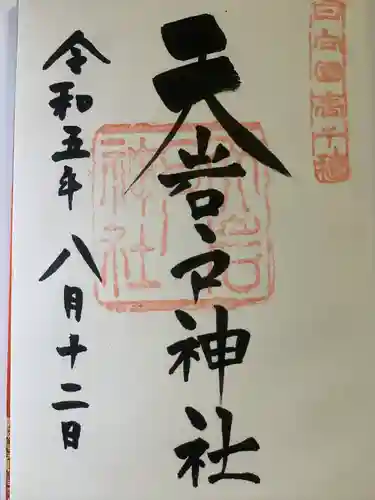 日向国高千穂
天岩戸神社
令和五年 八月十二日
天岩戸神社